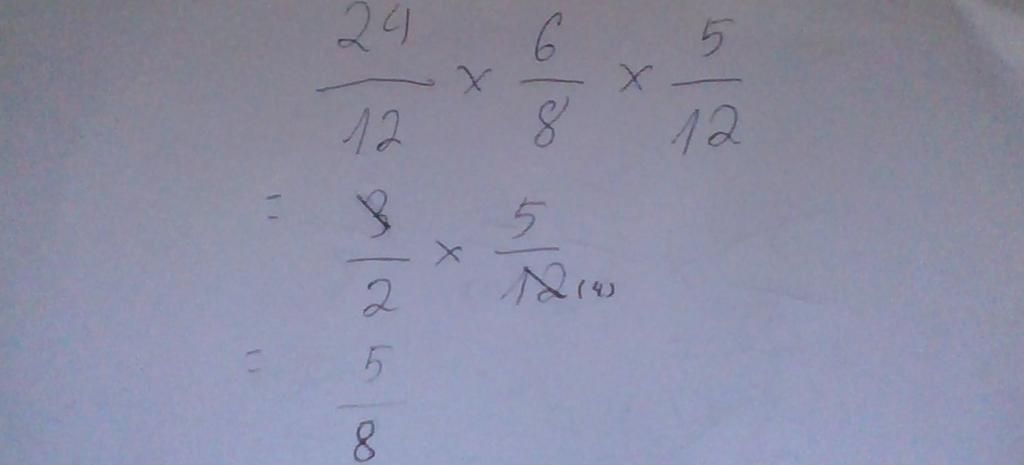 24/12 × 6/8 × 5/12
= 3/2 × 5/12 (4)
= 5/8